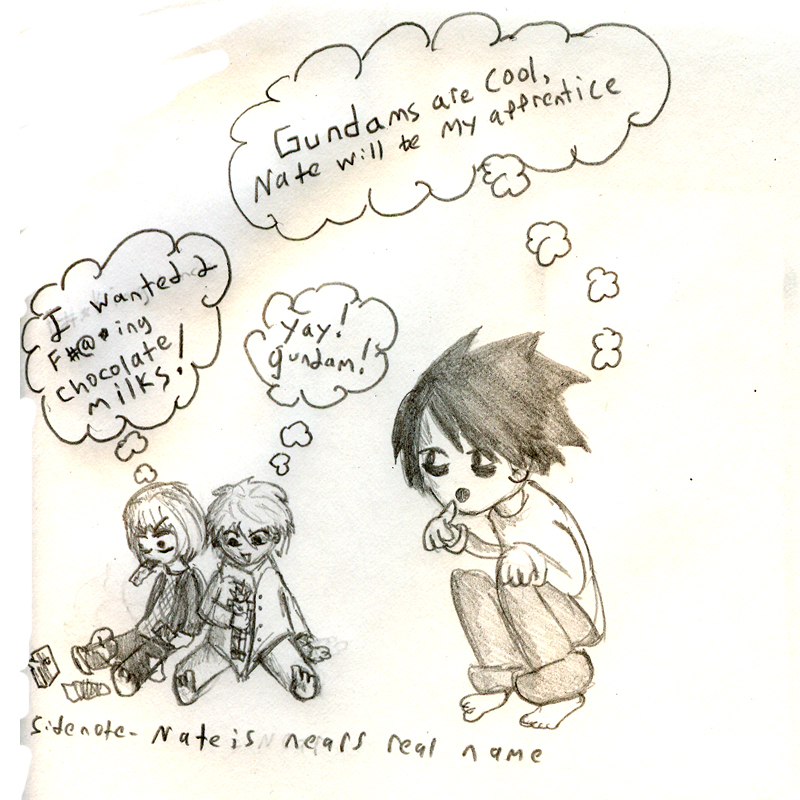 Gundams are Cool,
Nate will be my apprentice
I wanted 2
F#@*ing
chocolate
milks!
yay!
gundam!
Sidenote- Nate is nears real name